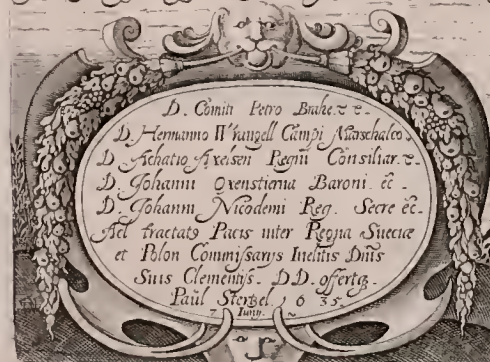 D. Comiti Petro Brahe. ꝛ ꝛ.
D. Hermanno Wrangell Campi Marschalco
D. Achatio Axelsen Regni Consiliar. ꝛ.
D. Johanni Oxenstierna Baroni. ec.
D. Johanni Nicodemi Reg. Secre ec.
Ad tractatꝰ Pacis inter Regna Sueciæ
et Polon Commissarys Inclitis Dnis
Suis Clementiss. D D. offertqꝫ.
Paul Stertzel. 1635.
7 Iuny.